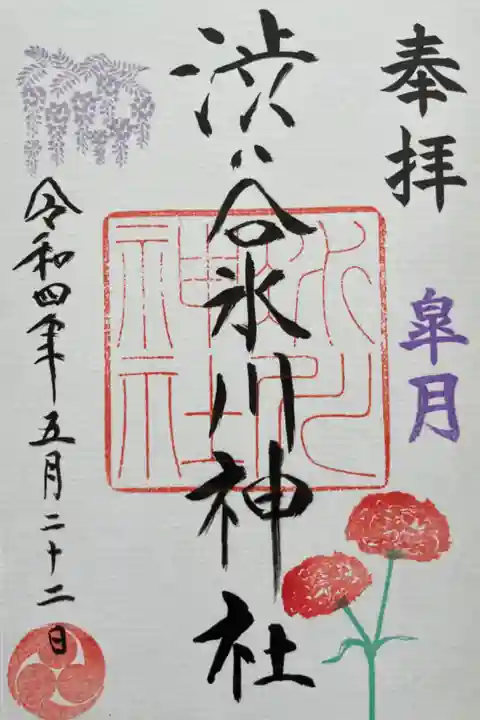 奉拝
皐月
渋谷氷川神社
氷川
神社
令和四年五月二十二日